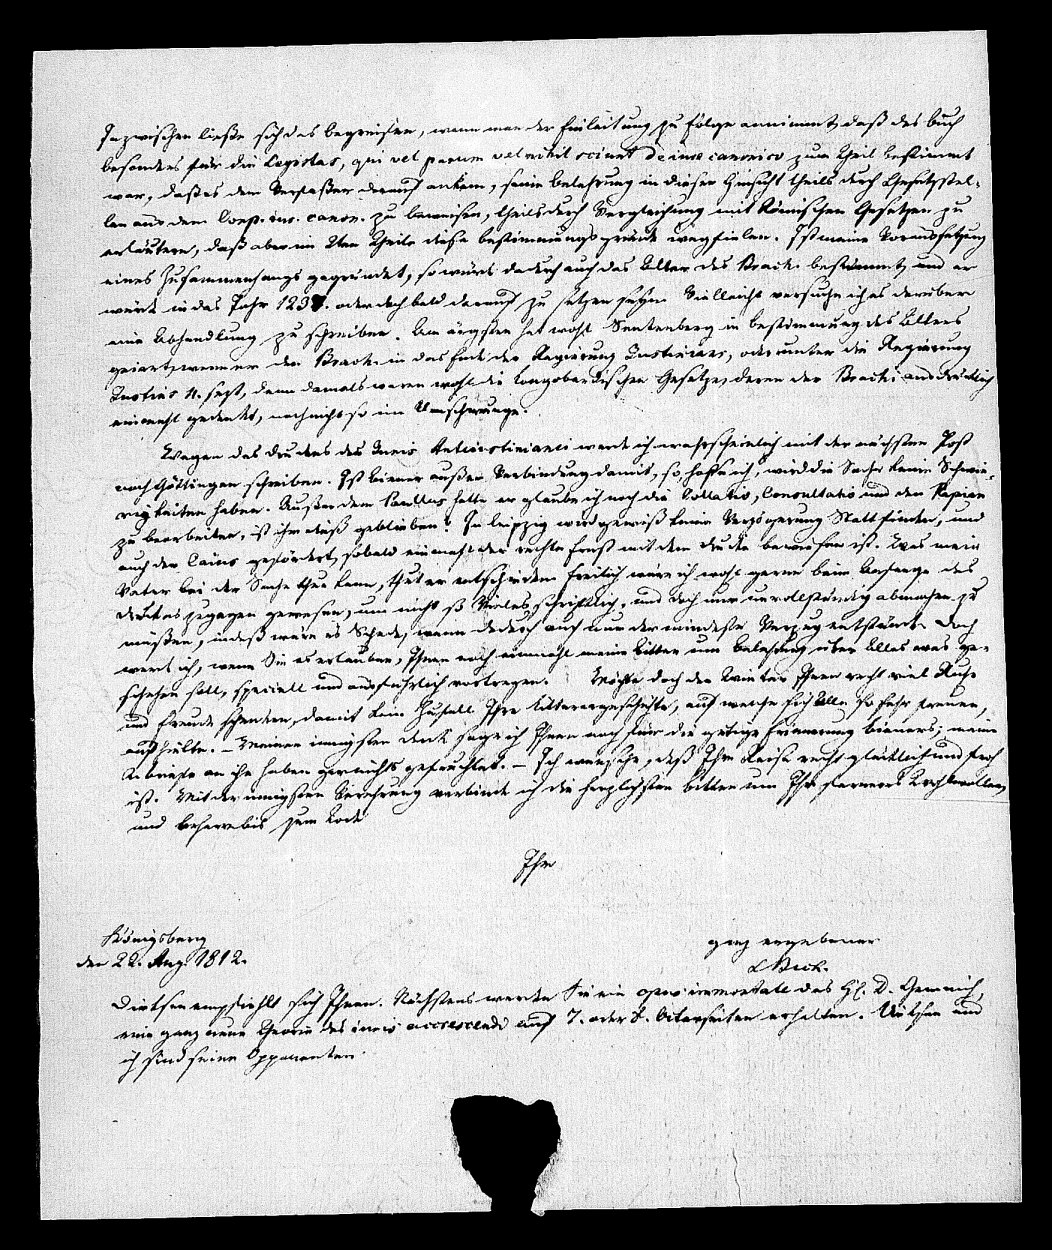 Inzwischen ließe sich das begreifen, wenn man der Einleitung zu Folge annimmt, daß das Buch
besonders für die Legistas, qui vel parum vel nihil sciunt de iure canonico zum Theil bestimmt
war, daß es dem Verfasser darauf ankam, seine Belehrung in dieser Hinsicht theils durch Gesetzstel-
len aus dem Corp. iur. canon. zu beweisen, theils durch Vergleichung mit Römischen Gesetzen zu
erläutern, daß aber im 2ten Theile diese Bestimmungsgründe wegfielen. Ist meine Voraussetzung
eines Zusammenhangs gegründet, so würde dadurch auch das Alter des Brach. bestimmt, und er
würde in das Jahr 1237. oder doch bald darauf zu setzen seyn. Vielleicht versuche ich es darüber
eine Abhandlung zu schreiben. Am ärgsten hat wohl Senkenberg in Bestimmung des Alters
geirrt, wenn er den Brach. in das Ende der Regierung Justinians, oder unter die Regierung
Justins II. setzt, denn damals waren wohl die Longobardischen Gesetze, deren der Brach. ausdrücklich
einmahl gedenkt, noch nicht so im Umschwunge.
Wegen des Druckes des Iuris Anteiustinianei werde ich wahrscheinlich mit der nächsten Post
nach Göttingen schreiben. Ist Biener außer Verbindung damit, so, hoffe ich, wird die Sache keine Schwie-
rigkeiten haben. Außer dem Paullus hatte er glaube ich noch die Collatio, Consultatio und den Papian
zu bearbeiten, ist ihm dieß geblieben? In Leipzig wird gewiß keine Verzögerung Statt finden, und
auch der Caius gefördert, sobald einmahl der rechte Ernst mit dem Drucke bewiesen ist. Was mein
Vater bei der Sache thun kann, thut er entschieden. Freilich wäre ich wohl gerne beim Anfange des
Druckes zugegen gewesen, um nicht so Vieles schriftlich, und doch nur unvollständig abmachen zu
müssen, indeß wäre es Schade, wenn dadurch auch nur der mindeste Verzug entstünde. Doch
werde ich, wenn Sie es erlauben, Ihnen noch einmahl meine Bitten um Belehrung über Alles was ge-
schehen soll, speciell und ausführlich vortragen. Möchte doch der Winter Ihnen recht viel Ruhe
und Freude schenken, damit kein Zufall Ihre Litterargeschichte, auf welche sich Alle so sehr freuen,
aufhielte. – Meinen innigsten Dank sage ich Ihnen auch für die gütige Erinnerung Bieners; meine
Briefe an ihn haben gar nichts gefruchtet. – Ich wünsche, daß Ihre Reise recht glücklich und froh
ist. Mit der innigsten Verehrung verbinde ich die herzlichsten Bitten um Ihr ferneres Wohlwollen,
und beharre bis zum Tode
Ihr
Königsberg
den 22. Aug. 1812.
ganz ergebener
Dirksen empfiehlt sich Ihnen. Nächstens werden Sie ein opus immortale des H. D.
eine ganz neue Theorie des iuris accrescendi auf 7. oder 8. Octavseiten erhalten. Dirksen und
ich sind seine Opponenten.